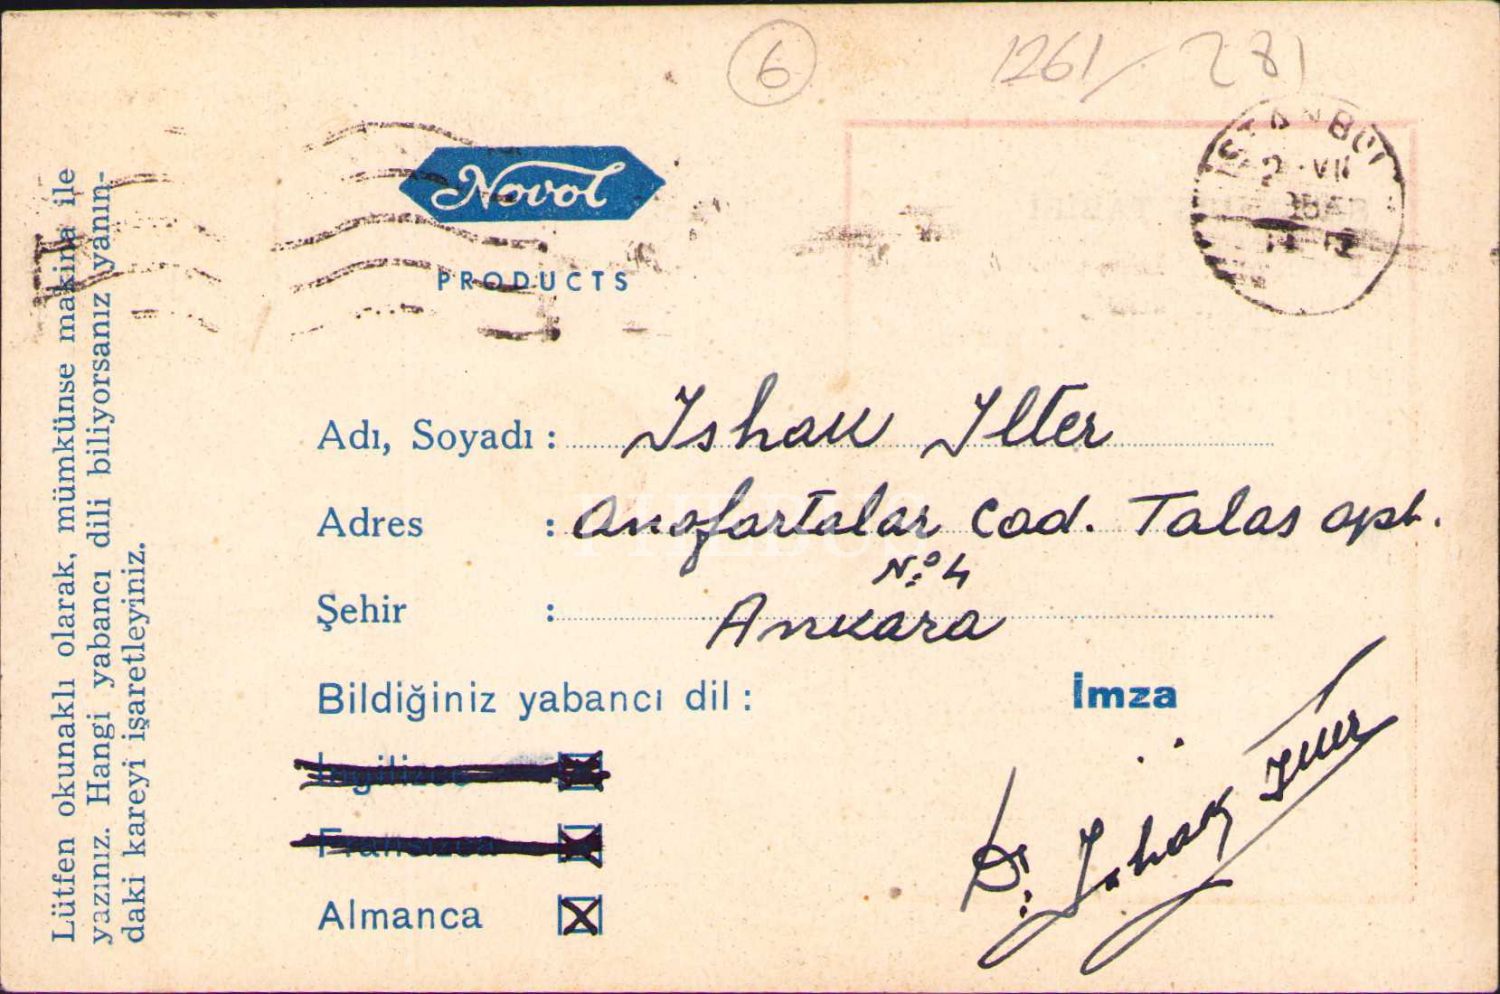 6
1261/281
İSTANBUL
2 VII
Novol
PRODUCTS
Lütfen okunaklı olarak, mümkünse makina ile
yazınız. Hangi yabancı dili biliyorsanız yanın-
daki kareyi işaretleyiniz.
Adı, Soyadı : Ishak Ilter
PHEBUS
Adres : Anafartalar Cad. Talas apt.
N:o 4
Şehir : Ankara
Bildiğiniz yabancı dil :
İmza
İngilizce
Fransızca
Almanca
Dr. İshak İlter